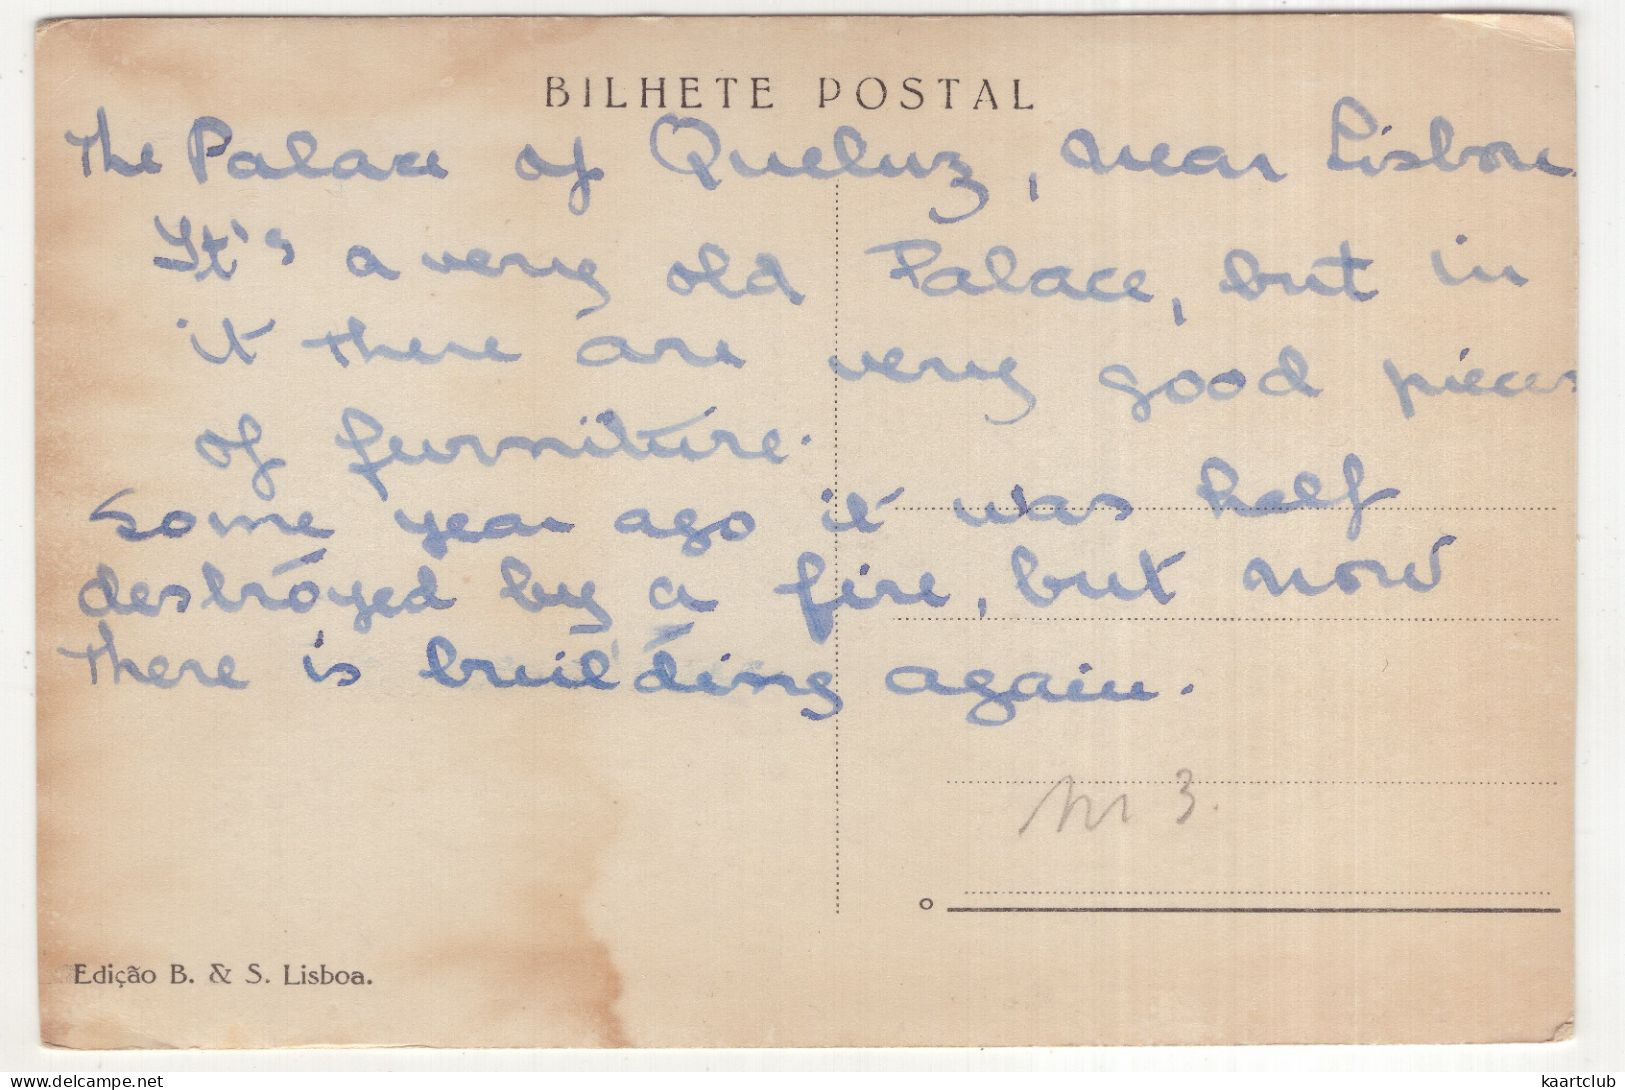 BILHETE POSTAL
The Palace of Queluz, near Lisbon.
It's a very old Palace, but in
it there are very good pieces
of furniture.
Some year ago it was half
destroyed by a fire, but now
there is building again.
3.
Edição B. & S. Lisboa.
delcampe.net
kaartclub